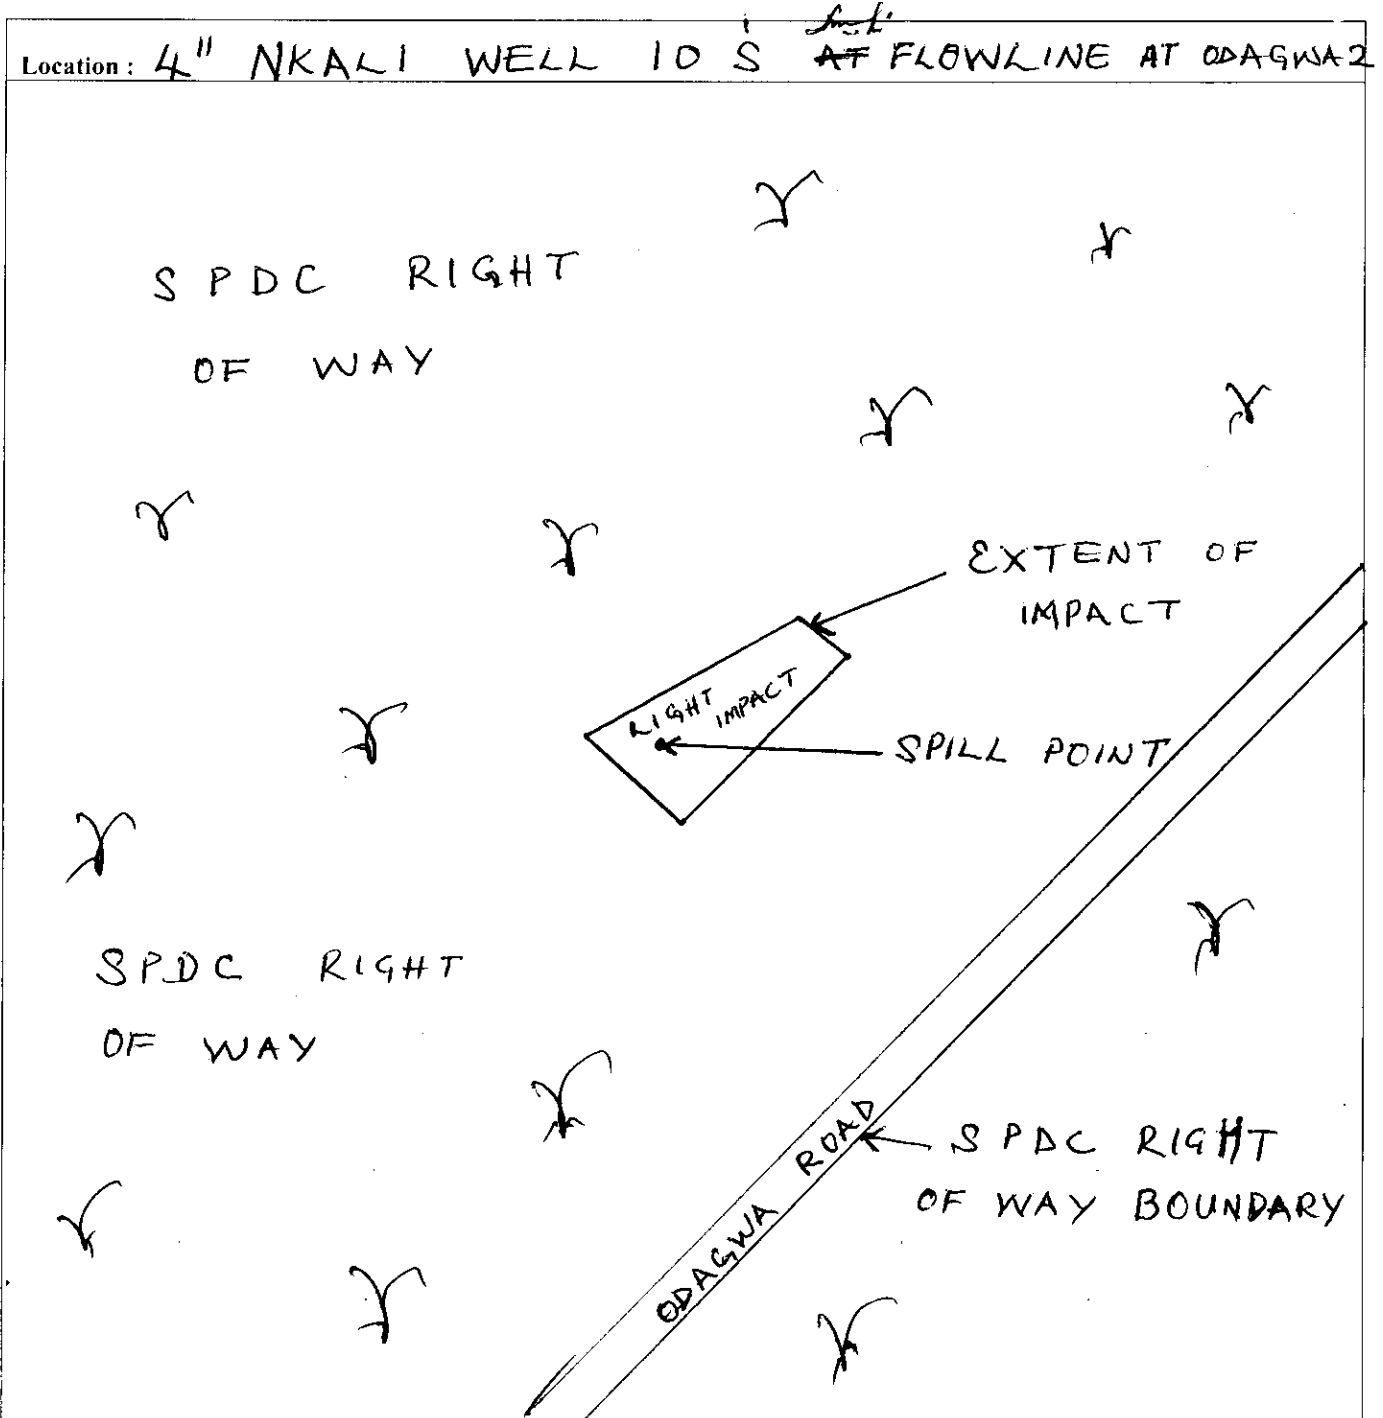 Location : 4" NKALI WELL 10 S AT FLOWLINE AT ODAGWA 2
SPDC RIGHT
OF WAY
EXTENT OF
IMPACT
RIGHT
IMPACT
SPILL POINT
SPDC RIGHT
OF WAY
ODAGWA ROAD
SPDC RIGHT
OF WAY BOUNDARY